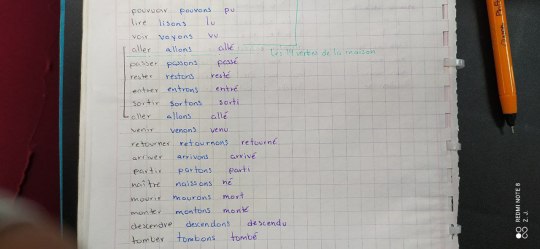 pouvoir pouvons pu
lire lisons lu
voir voyons vu
aller allons allé
Les 14 verbes de la maison
passer passons passé
rester restons resté
entrer entrons entré
sortir sortons sorti
aller allons allé
venir venons venu
retourner retournons retourné
arriver arrivons arrivé
partir partons parti
naître naissons né
mourir mourons mort
monter montons monté
descendre descendons descendu
tomber tombons tombé
REDMI NOTE 8
Z. J.